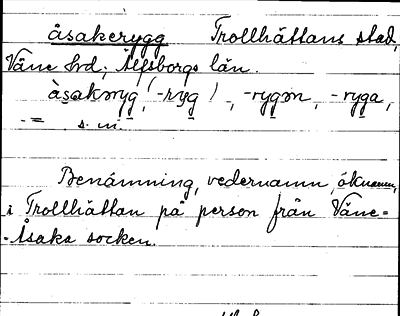 åsakerygg Trollhättans stad,
Väne hrd; Älfsborgs län.
-rygən, -ryga,
-= s. m.
Benämning, vedernamn, öknamn,
i Trollhättan på person från Väne-
-Åsaka socken.